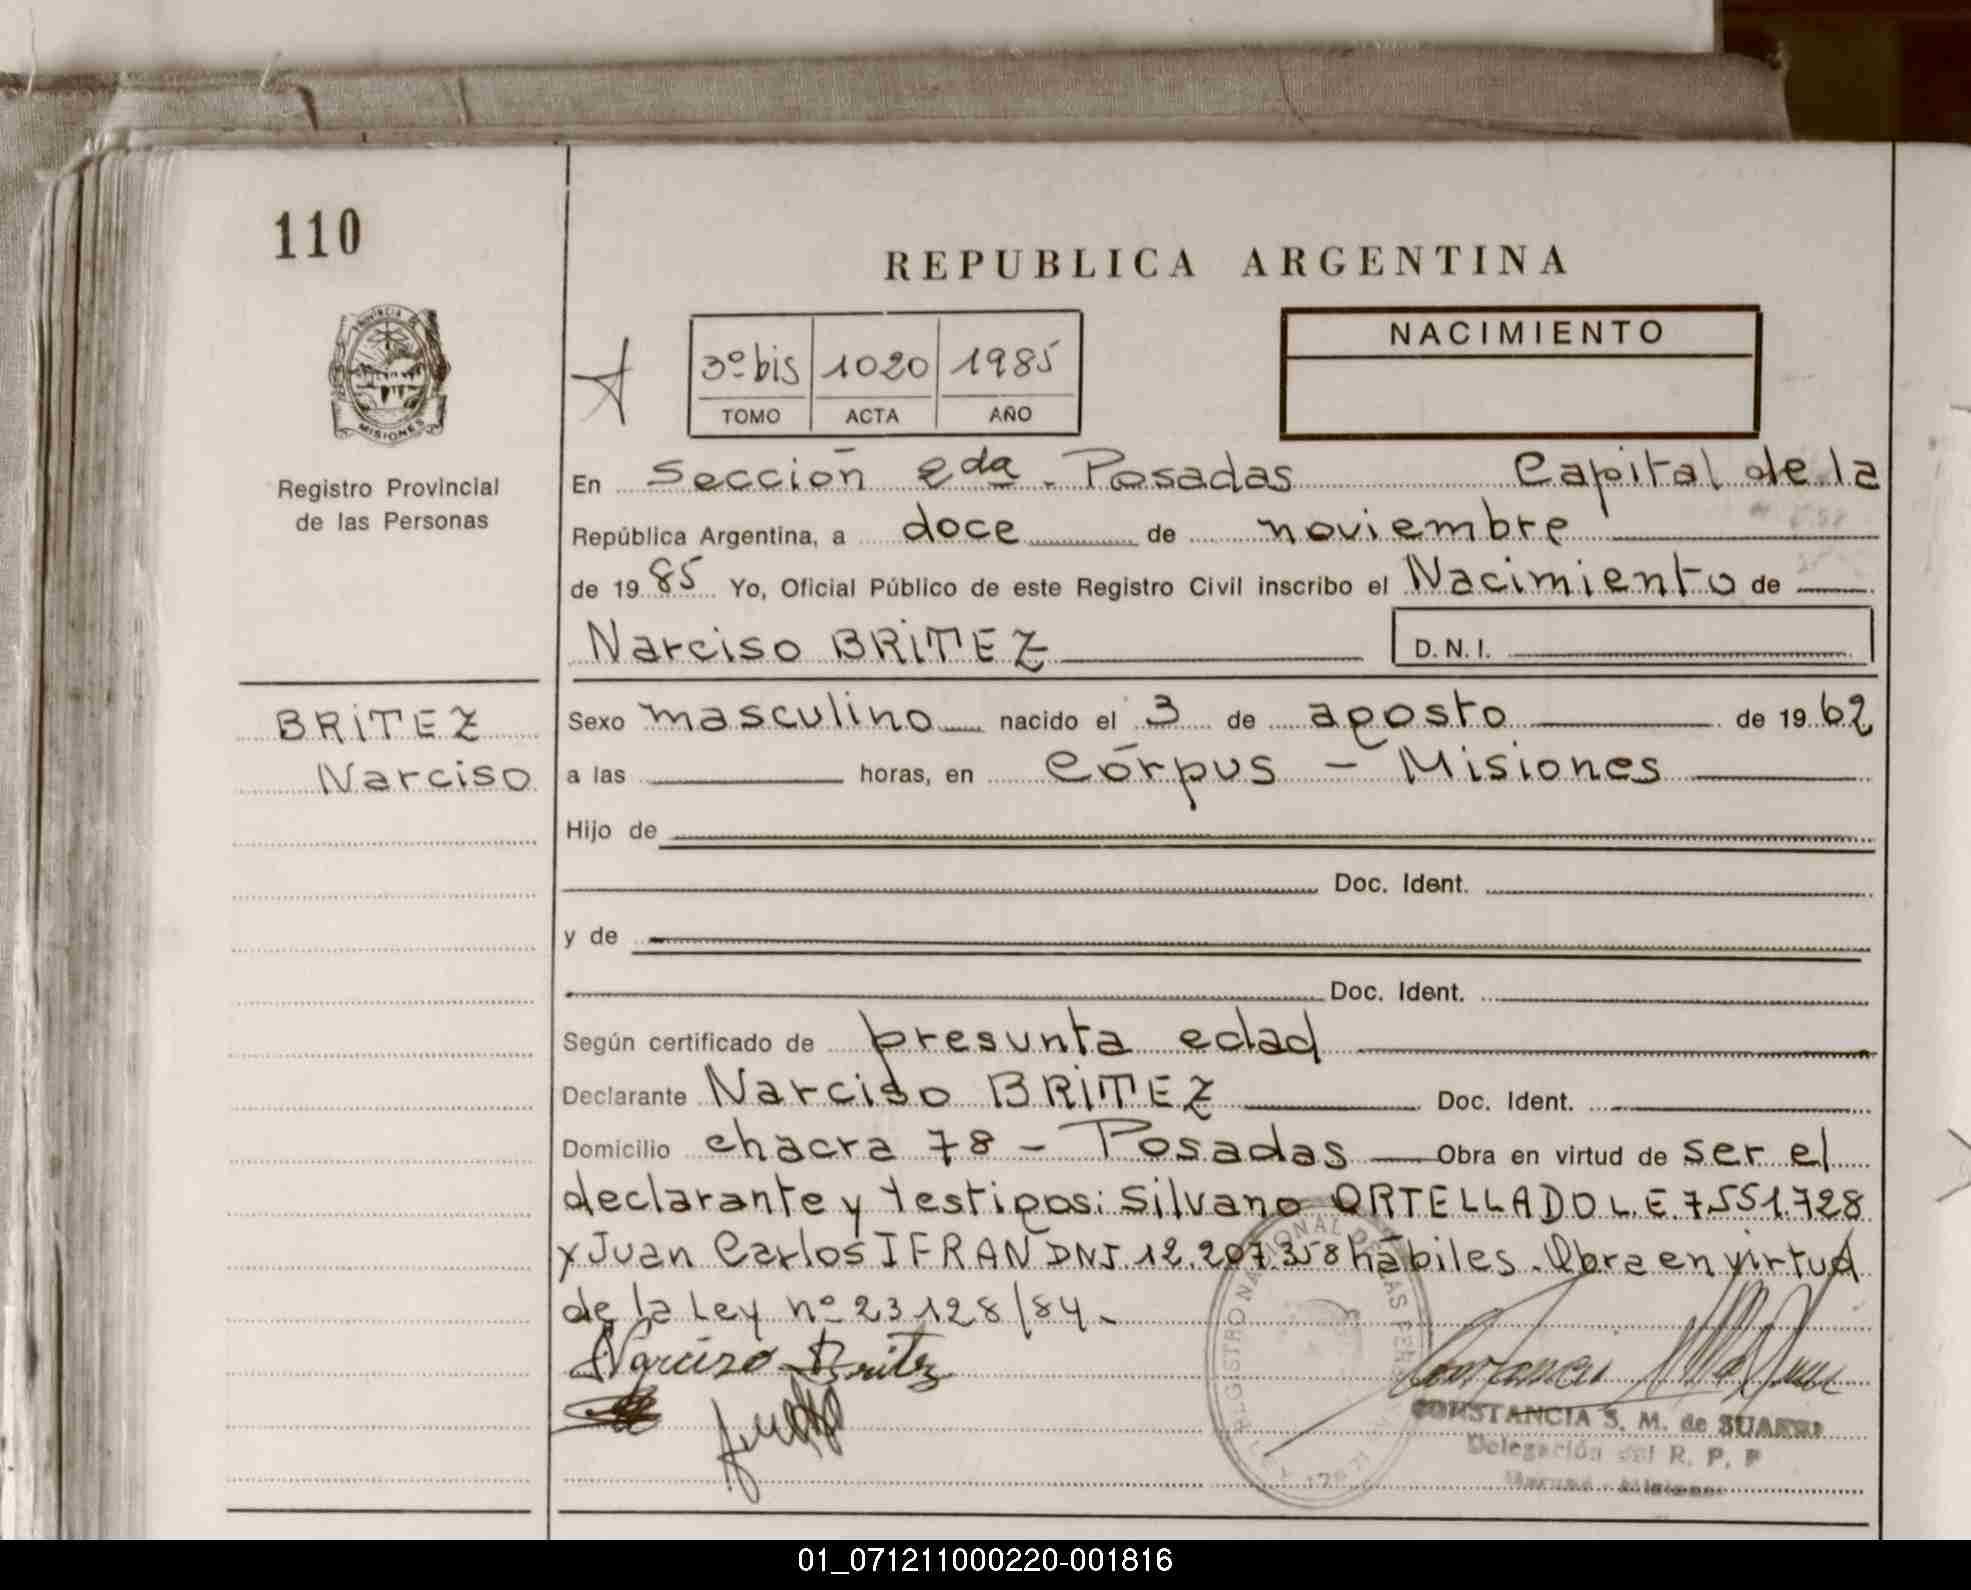 110
REPUBLICA ARGENTINA
PROVINCIA DE
MISIONES
3º bis 1020 1985
TOMO ACTA AÑO
NACIMIENTO
Registro Provincial
de las Personas
En Sección 2da. Posadas Capital de la
República Argentina, a doce de noviembre
de 1985 Yo, Oficial Público de este Registro Civil inscribo el Nacimiento de
Narciso BRITEZ D.N.I.
BRITEZ
Narciso
Sexo masculino nacido el 3 de agosto de 1962
a las horas, en Córpus - Misiones
Hijo de
Doc. Ident.
y de
Doc. Ident.
Según certificado de presunta edad
Declarante Narciso BRITEZ Doc. Ident.
Domicilio chacra 78 - Posadas Obra en virtud de ser el
declarante y testigos: Silvano ORTELLADO L.E. 7.551.728
y Juan Carlos IFRAN DNI. 12.207.358 hábiles. Obra en virtud
de la Ley nº 23128/84.-
Narciso Britez
REGISTRO NACIONAL DE LAS PERS
CONSTANCIA S. M. de SUAREZ
Delegación del R. P. P
01_071211000220-001816